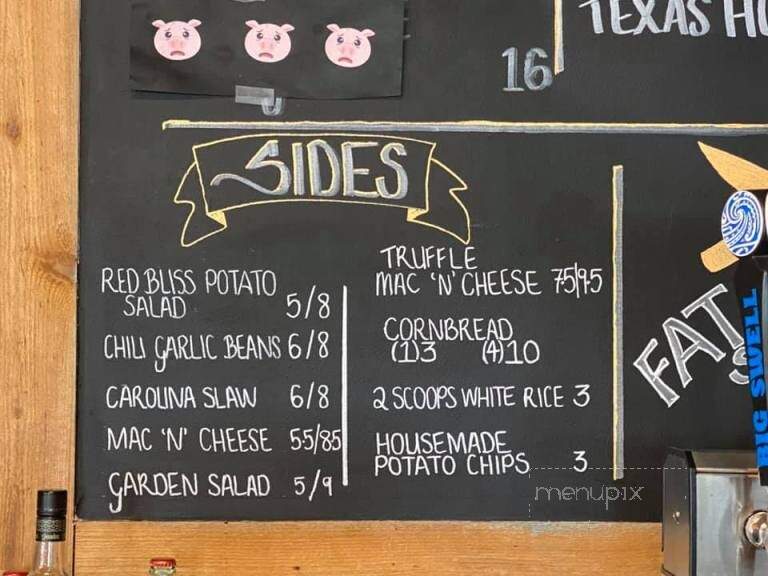 TEXAS HO
16
SIDES
RED BLISS POTATO
SALAD 5/8
CHILI GARLIC BEANS 6/8
CAROLINA SLAW 6/8
MAC 'N' CHEESE 5.5/8.5
GARDEN SALAD 5/9
TRUFFLE
MAC 'N' CHEESE 7.5/9.5
CORNBREAD
(1)3 (4)10
2 SCOOPS WHITE RICE 3
HOUSEMADE
POTATO CHIPS 3
FAT
S
BIG SWELL
menupix